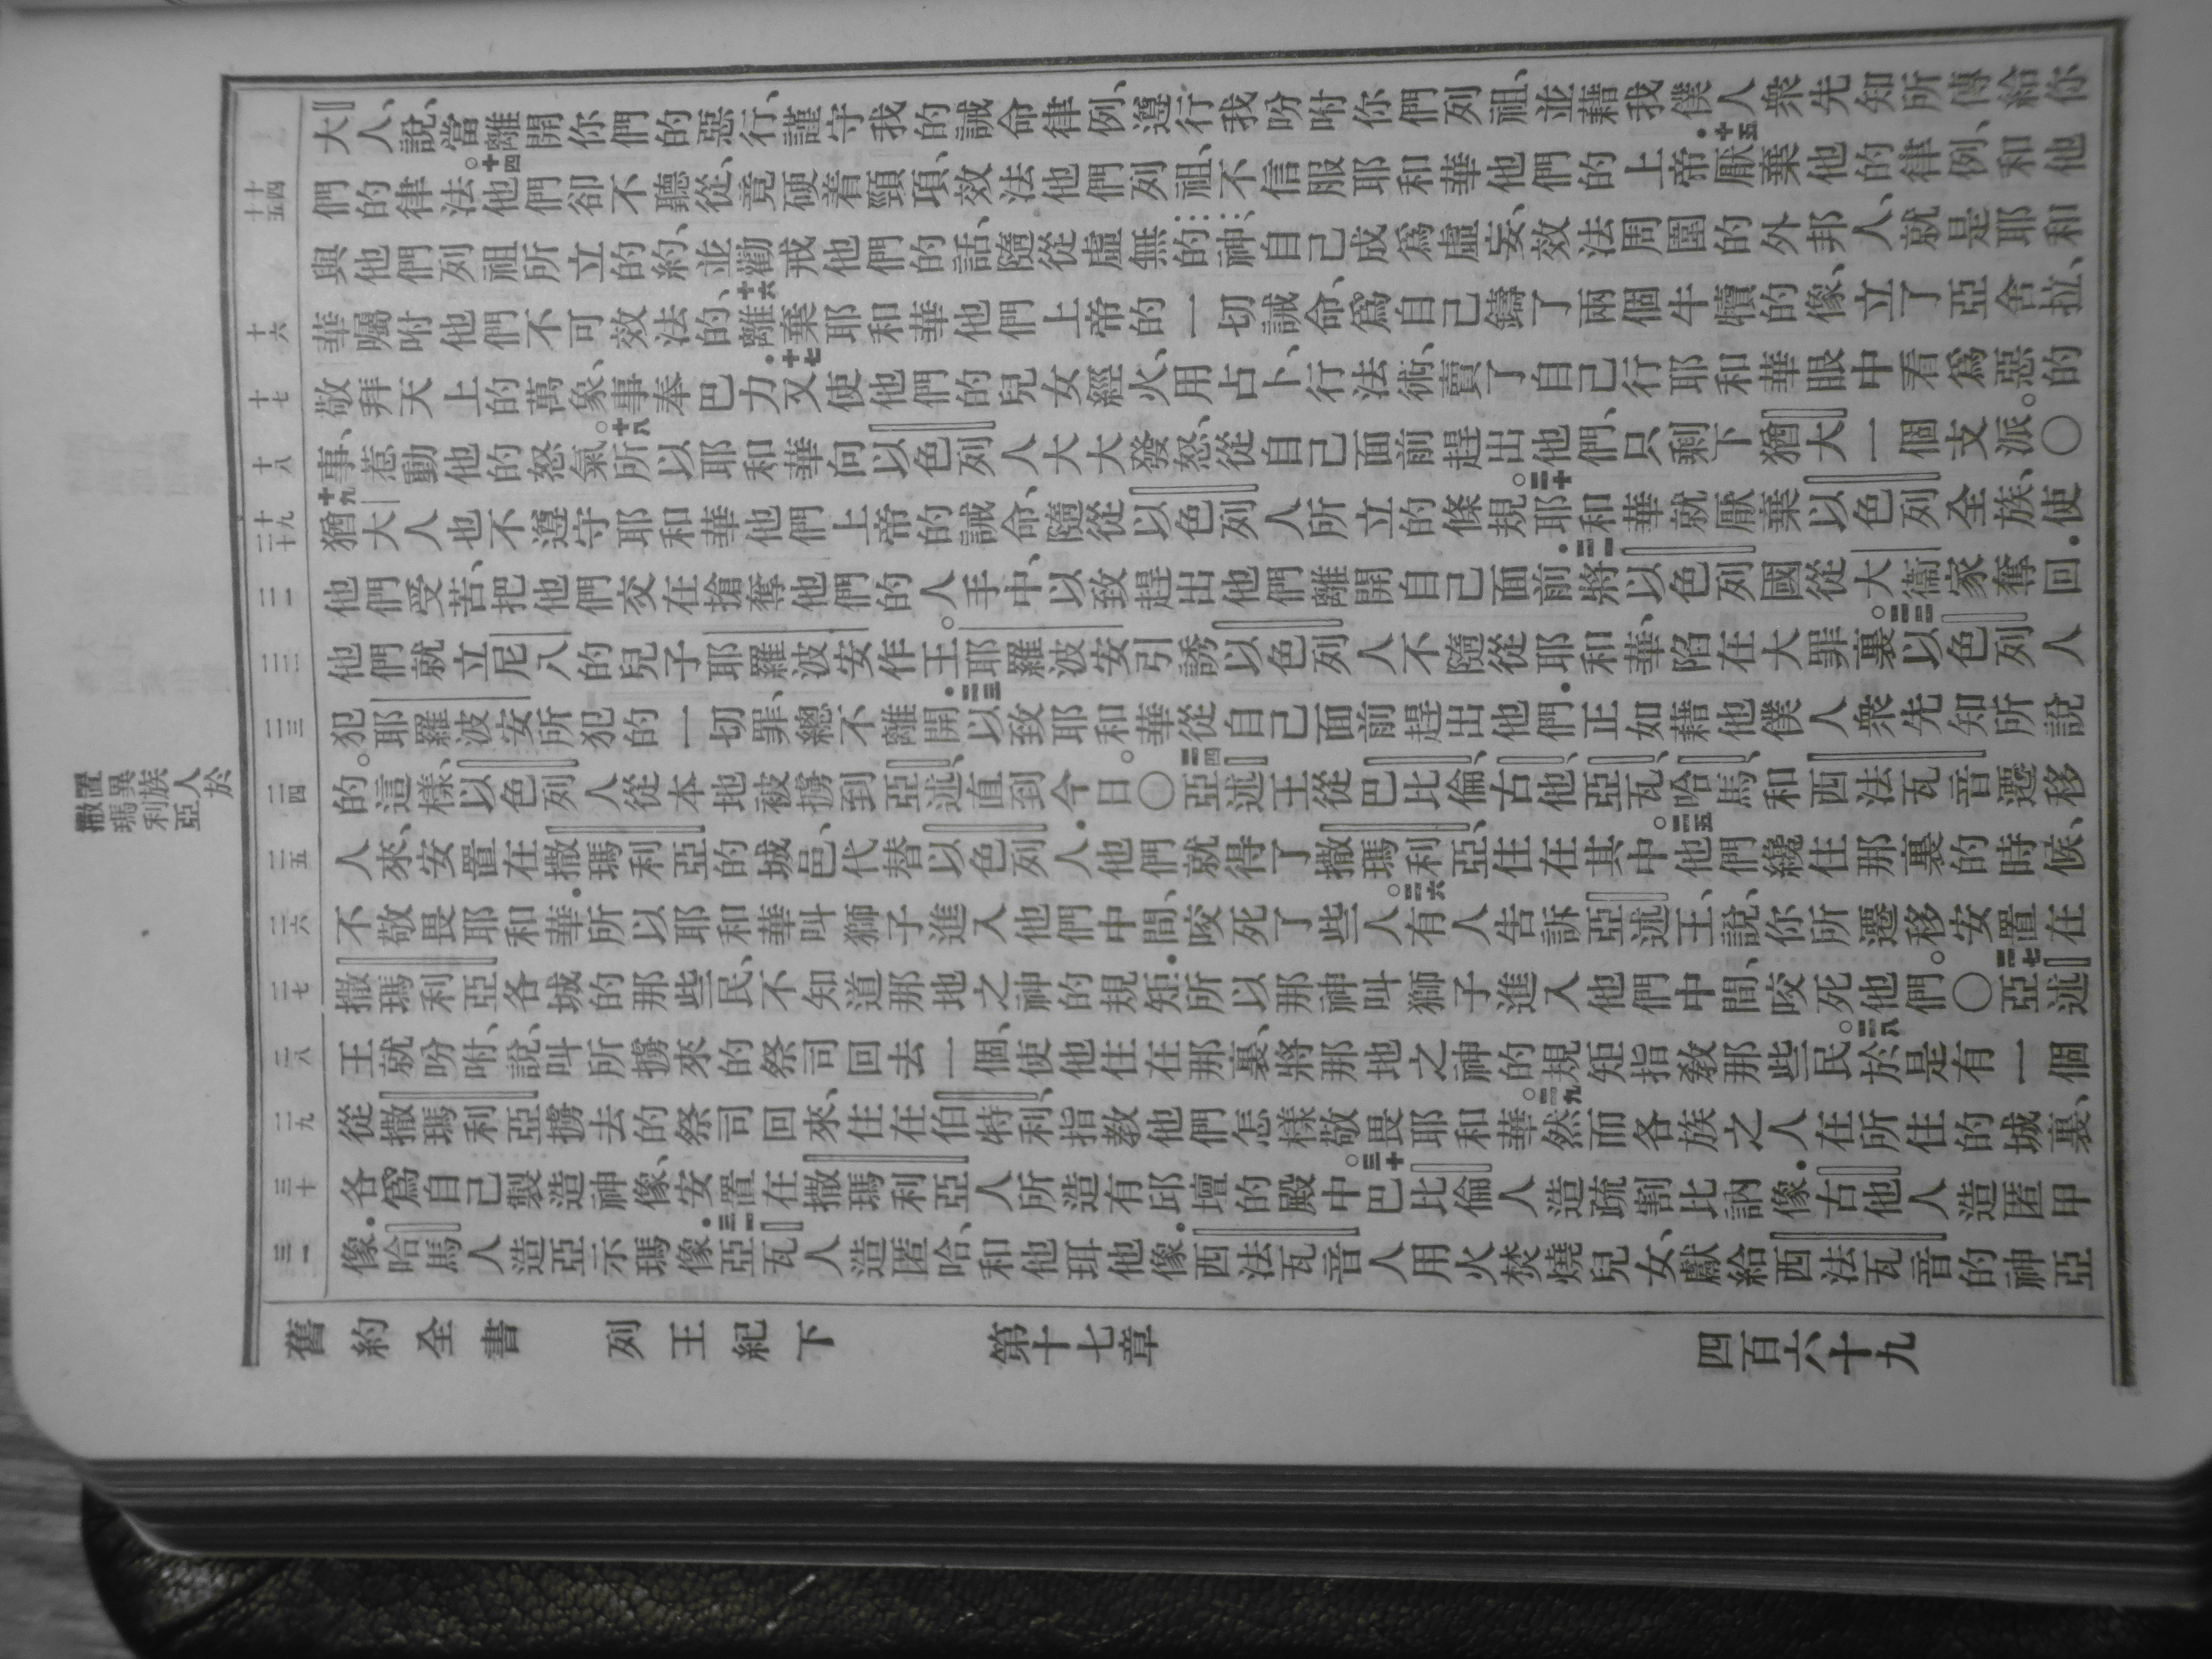 大人、說、當離開你們的惡行、謹守我的誡命律例、遵行我吩咐你們列祖、並藉我僕人衆先知所傳給你
們的律法。十四他們卻不聽從、竟硬着頸項、效法他們列祖、不信服耶和華他們的上帝.十五厭棄他的律例、和他
與他們列祖所立的約、並勸戒他們的話、隨從虛無的神、自己成爲虛妄、效法周圍的外邦人、就是耶和
華囑咐他們不可效法的、十六離棄耶和華他們上帝的一切誡命、爲自己鑄了兩個牛犢的像、立了亞舍拉、
敬拜天上的萬象、事奉巴力.十七又使他們的兒女經火、用占卜、行法術、賣了自己行耶和華眼中看爲惡的
事、惹動他的怒氣。十八所以耶和華向以色列人大大發怒、從自己面前趕出他們、只剩下猶大一個支派。〇
十九猶大人也不遵守耶和華他們上帝的誡命、隨從以色列人所立的條規。二十耶和華就厭棄以色列全族、使
他們受苦、把他們交在搶奪他們的人手中、以致趕出他們離開自己面前.二一將以色列國從大衞家奪回.
他們就立尼八的兒子耶羅波安作王。耶羅波安引誘以色列人不隨從耶和華、陷在大罪裏。二二以色列人
犯耶羅波安所犯的一切罪、總不離開.二三以致耶和華從自己面前趕出他們.正如藉他僕人衆先知所說
的。這樣、以色列人從本地被擄到亞述、直到今日。〇二四亞述王從巴比倫、古他、亞瓦、哈馬、和西法瓦音遷移
人來、安置在撒瑪利亞的城邑、代替以色列人.他們就得了撒瑪利亞、住在其中。二五他們纔住那裏的時候、
不敬畏耶和華.所以耶和華叫獅子進入他們中間、咬死了些人。二六有人告訴亞述王、說、你所遷移安置在
撒瑪利亞各城的那些民、不知道那地之神的規矩.所以那神叫獅子進入他們中間、咬死他們。〇二七亞述
王就吩咐、說、叫所擄來的祭司回去一個、使他住在那裏、將那地之神的規矩指敎那些民。二八於是有一個
從撒瑪利亞擄去的祭司回來、住在伯特利、指敎他們怎樣敬畏耶和華。二九然而各族之人在所住的城裏、
各爲自己製造神像、安置在撒瑪利亞人所造有邱壇的殿中。三十巴比倫人造疏割比訥像.古他人造匿甲
像.哈馬人造亞示瑪像.三一亞瓦人造匿哈、和他珥他像.西法瓦音人用火焚燒兒女、獻給西法瓦音的神亞
十四 十五
十六
十七
十八
十九 二十
二一
二二
二三
二四
二五
二六
二七
二八
二九
三十
三一
置異族人於
撒瑪利亞
舊約全書 列王紀下 第十七章 四百六十九